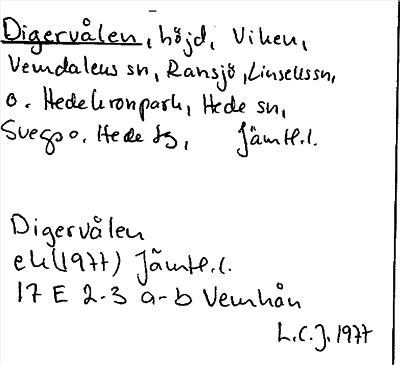 Digervålen, höjd, Viken,
Vemdalens sn, Ransjö, Linsellssn,
o. Hede kronpark, Hede sn,
Svegs o. Hede tg, Jämtl.l.
Digervålen
ek (1977) Jämtl.l.
17 E 2-3 a-b Vemhån
L.C.J. 1977